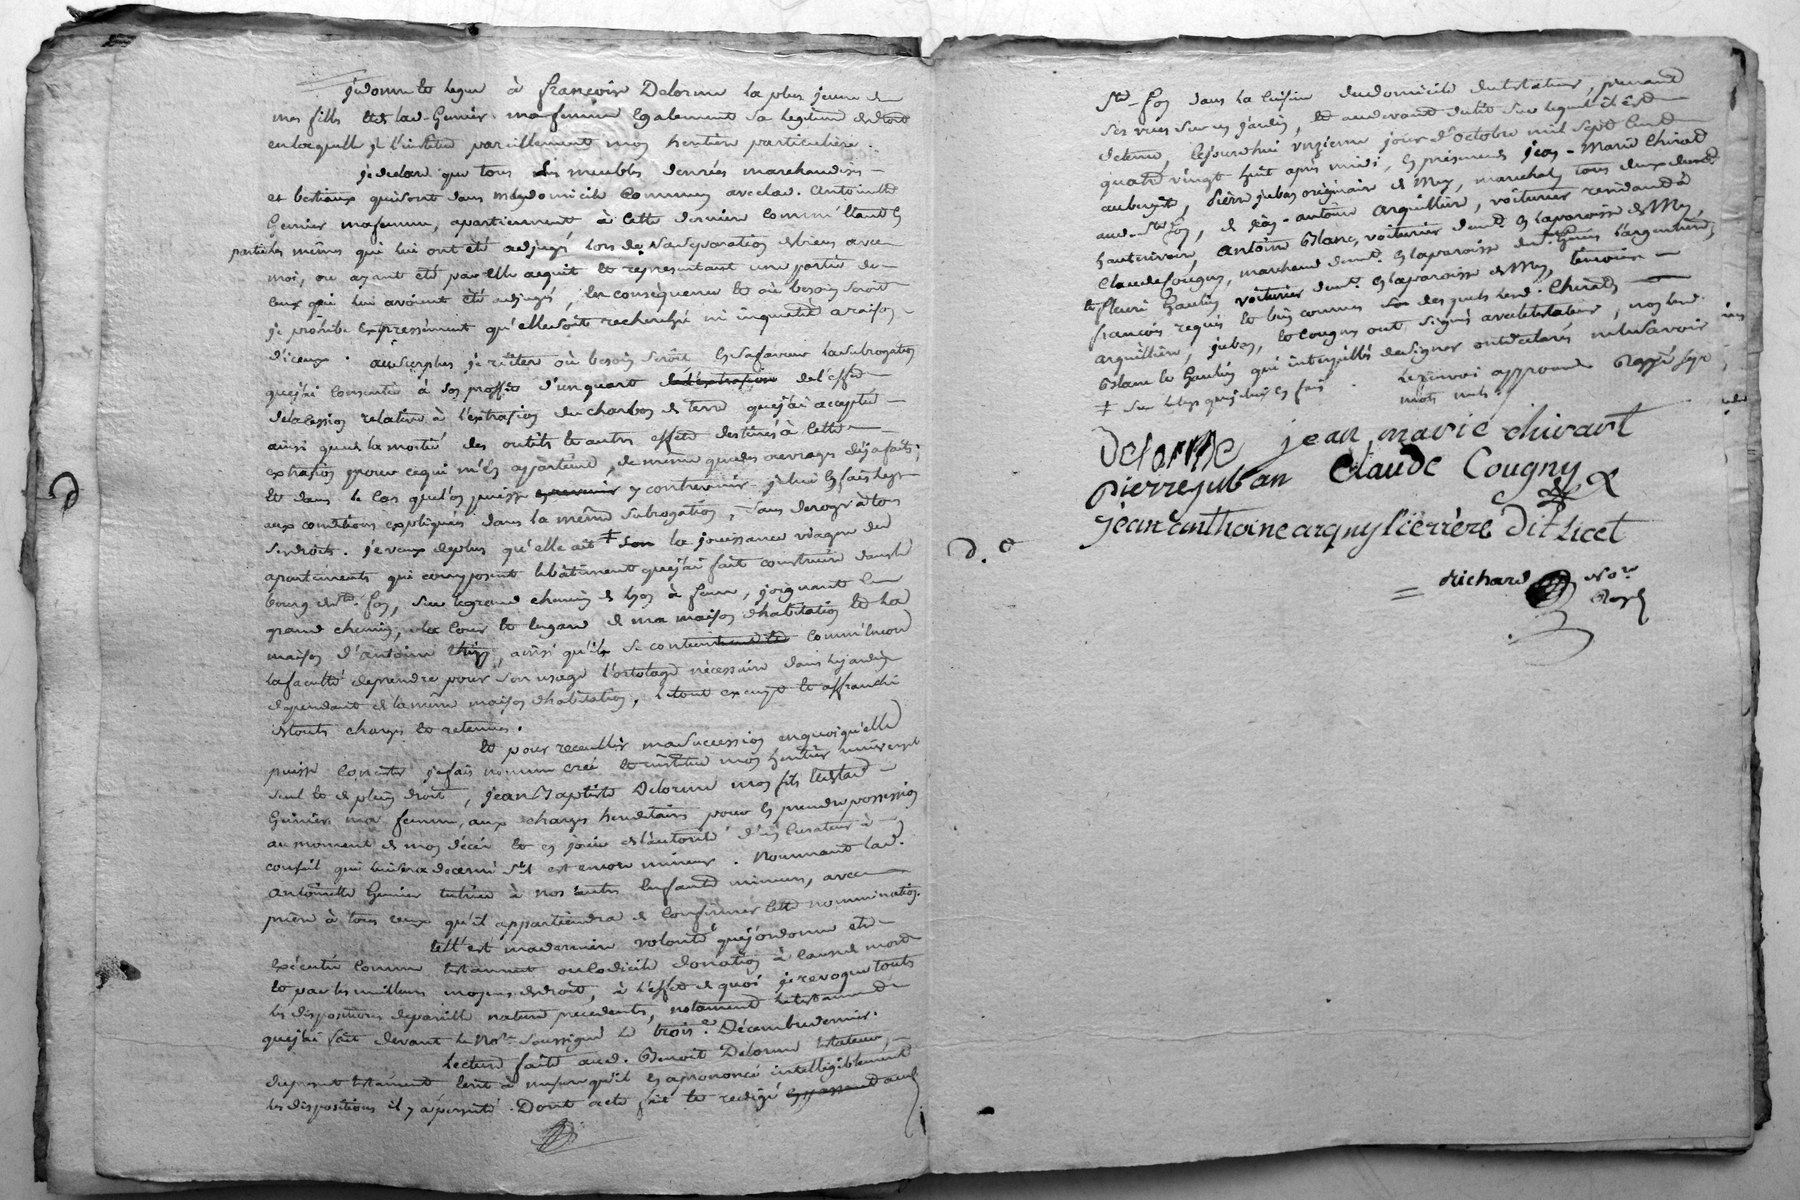 je donne et legue à françoise Delorme la plus jeune de
mes filles et de lad. Genier ma femme egalement sa legitime de droit
en laquelle je l'institue pareillement mon heritiere particuliere.
je declare que tous les meubles denrées marchandises
et bestiaux qui sont dans mon domicile commun avec lad. antoinette
Genier ma femme, apartiennent à cette derniere comme étant les
mêmes qui lui ont été adjugés lors de sa separation de biens avec
moi, ou ayant été par elle acquit et representant une partie de
ceux qui lui avoient été adjugés, en consequence et où besoin seroit
je prohibe expressément qu'elle soit recherchée ni inquietée a raison
d'iceux. au surplus je réitere où besoin seroit en sa faveur la subrogation
que j'ai consentie à son proffit d'un quart de l'extrasion de l'effet
de la cession relative à l'extrasion du charbon de terre que j'ai acceptée
ainsi que de la moitié des outils et autres effets destinés à cette
extrasion pour ce qui m'en appartient, de même que des ouvrages déja faits;
et dans le cas que l'on puisse y contrevenir je lui en fais legs
aux conditions expliquées dans la même subrogation, sans deroger à tous
ses droits. je veux de plus qu'elle ait ‡ son la jouissance viagere des
apartements qui composent le bâtiment que j'ai fait construire dans le
bourg de Ste. foy, sur le grand chemin de lyon à feurs, joignant le
grand chemin, la cour et hegard de ma maison d'habitation et la
maison d'antoine, ainsi qu'il se contient et comm'encore
la faculté de prendre pour son usage l'ortolage nécessaire dans le jardin
dependant de la même maison d'habitation, le tout exempt et affranchi
de touts charges et retenues.
et pour recueillir ma succession en quoi qu'elle
puisse consister je fais nomme créé et institue mon heritier universel
seul et de plein droit, jean Baptiste Delorme mon fils et de lad.
Genier ma femme, aux charges hereditaires pour en prendre possession
au moment de mon décès et en jouir de l'autorité d'un curateur à
conseil qui lui sera decerné s'il est encore mineur. Nommant lad.
antoinette Genier tutrice à nos autres enfants mineurs, avec
priere à tous ceux qu'il appartiendra de confirmer cette nommination.
telle est ma derniere volonté que j'ordonne etre
exécutée comme testament ou codicile donation à cause de mort
et par les meilleurs moyens de droit, à l'effet de quoi je revoque touts
les dispositions de pareille nature precedents, notament le testament
que j'ai fait devant le No.re soussigné le trois.e Décembre dernier.
Lecture faite aud. Benoit Delorme testateur,
du present testament ecrit à mesure qu'il en a prononcé intelligiblement
les dispositions il y a persisté. Dont acte fait et redigé
Ste foy dans la cuisine du domicile du testateur, prenant
ses vues sur un jardin, et au devant du lit sur lequel il est
detenu, cejourd'hui onzieme jour d'octobre mil sept cent
quatre vingt huit après midi, en présence de jean-Marie Chirat
aubergiste, Pierre juban originaire de Mey, marechal, tous deux demt.
aud. Ste foy, de jean-antoine arquilliere, voiturier residant à
hauterivoire, antoine Blanc, voiturier demt. en la paroisse de Mey
Claude Cougny, marchand demt. en la paroisse de St. Genis l'argentiere,
et fleuri Gaulin voiturier demt. en la paroisse de Mey, temoins
francois requis et bien connus desquels led. Chirat
arquilliere, juban, et Cougny ont signé avec le testateur, non led.
Blanc et Gaulin qui interpellés de signer ont declaré ne le savoir
‡ sur le legs que je lui en fais. le renvoi approuvé Rayé sept
mots nuls.
Delorme jean marie chirart
pierre juban Claude Cougny
jean anthoine arquyllierère dit licet
Richard No.re
Royl